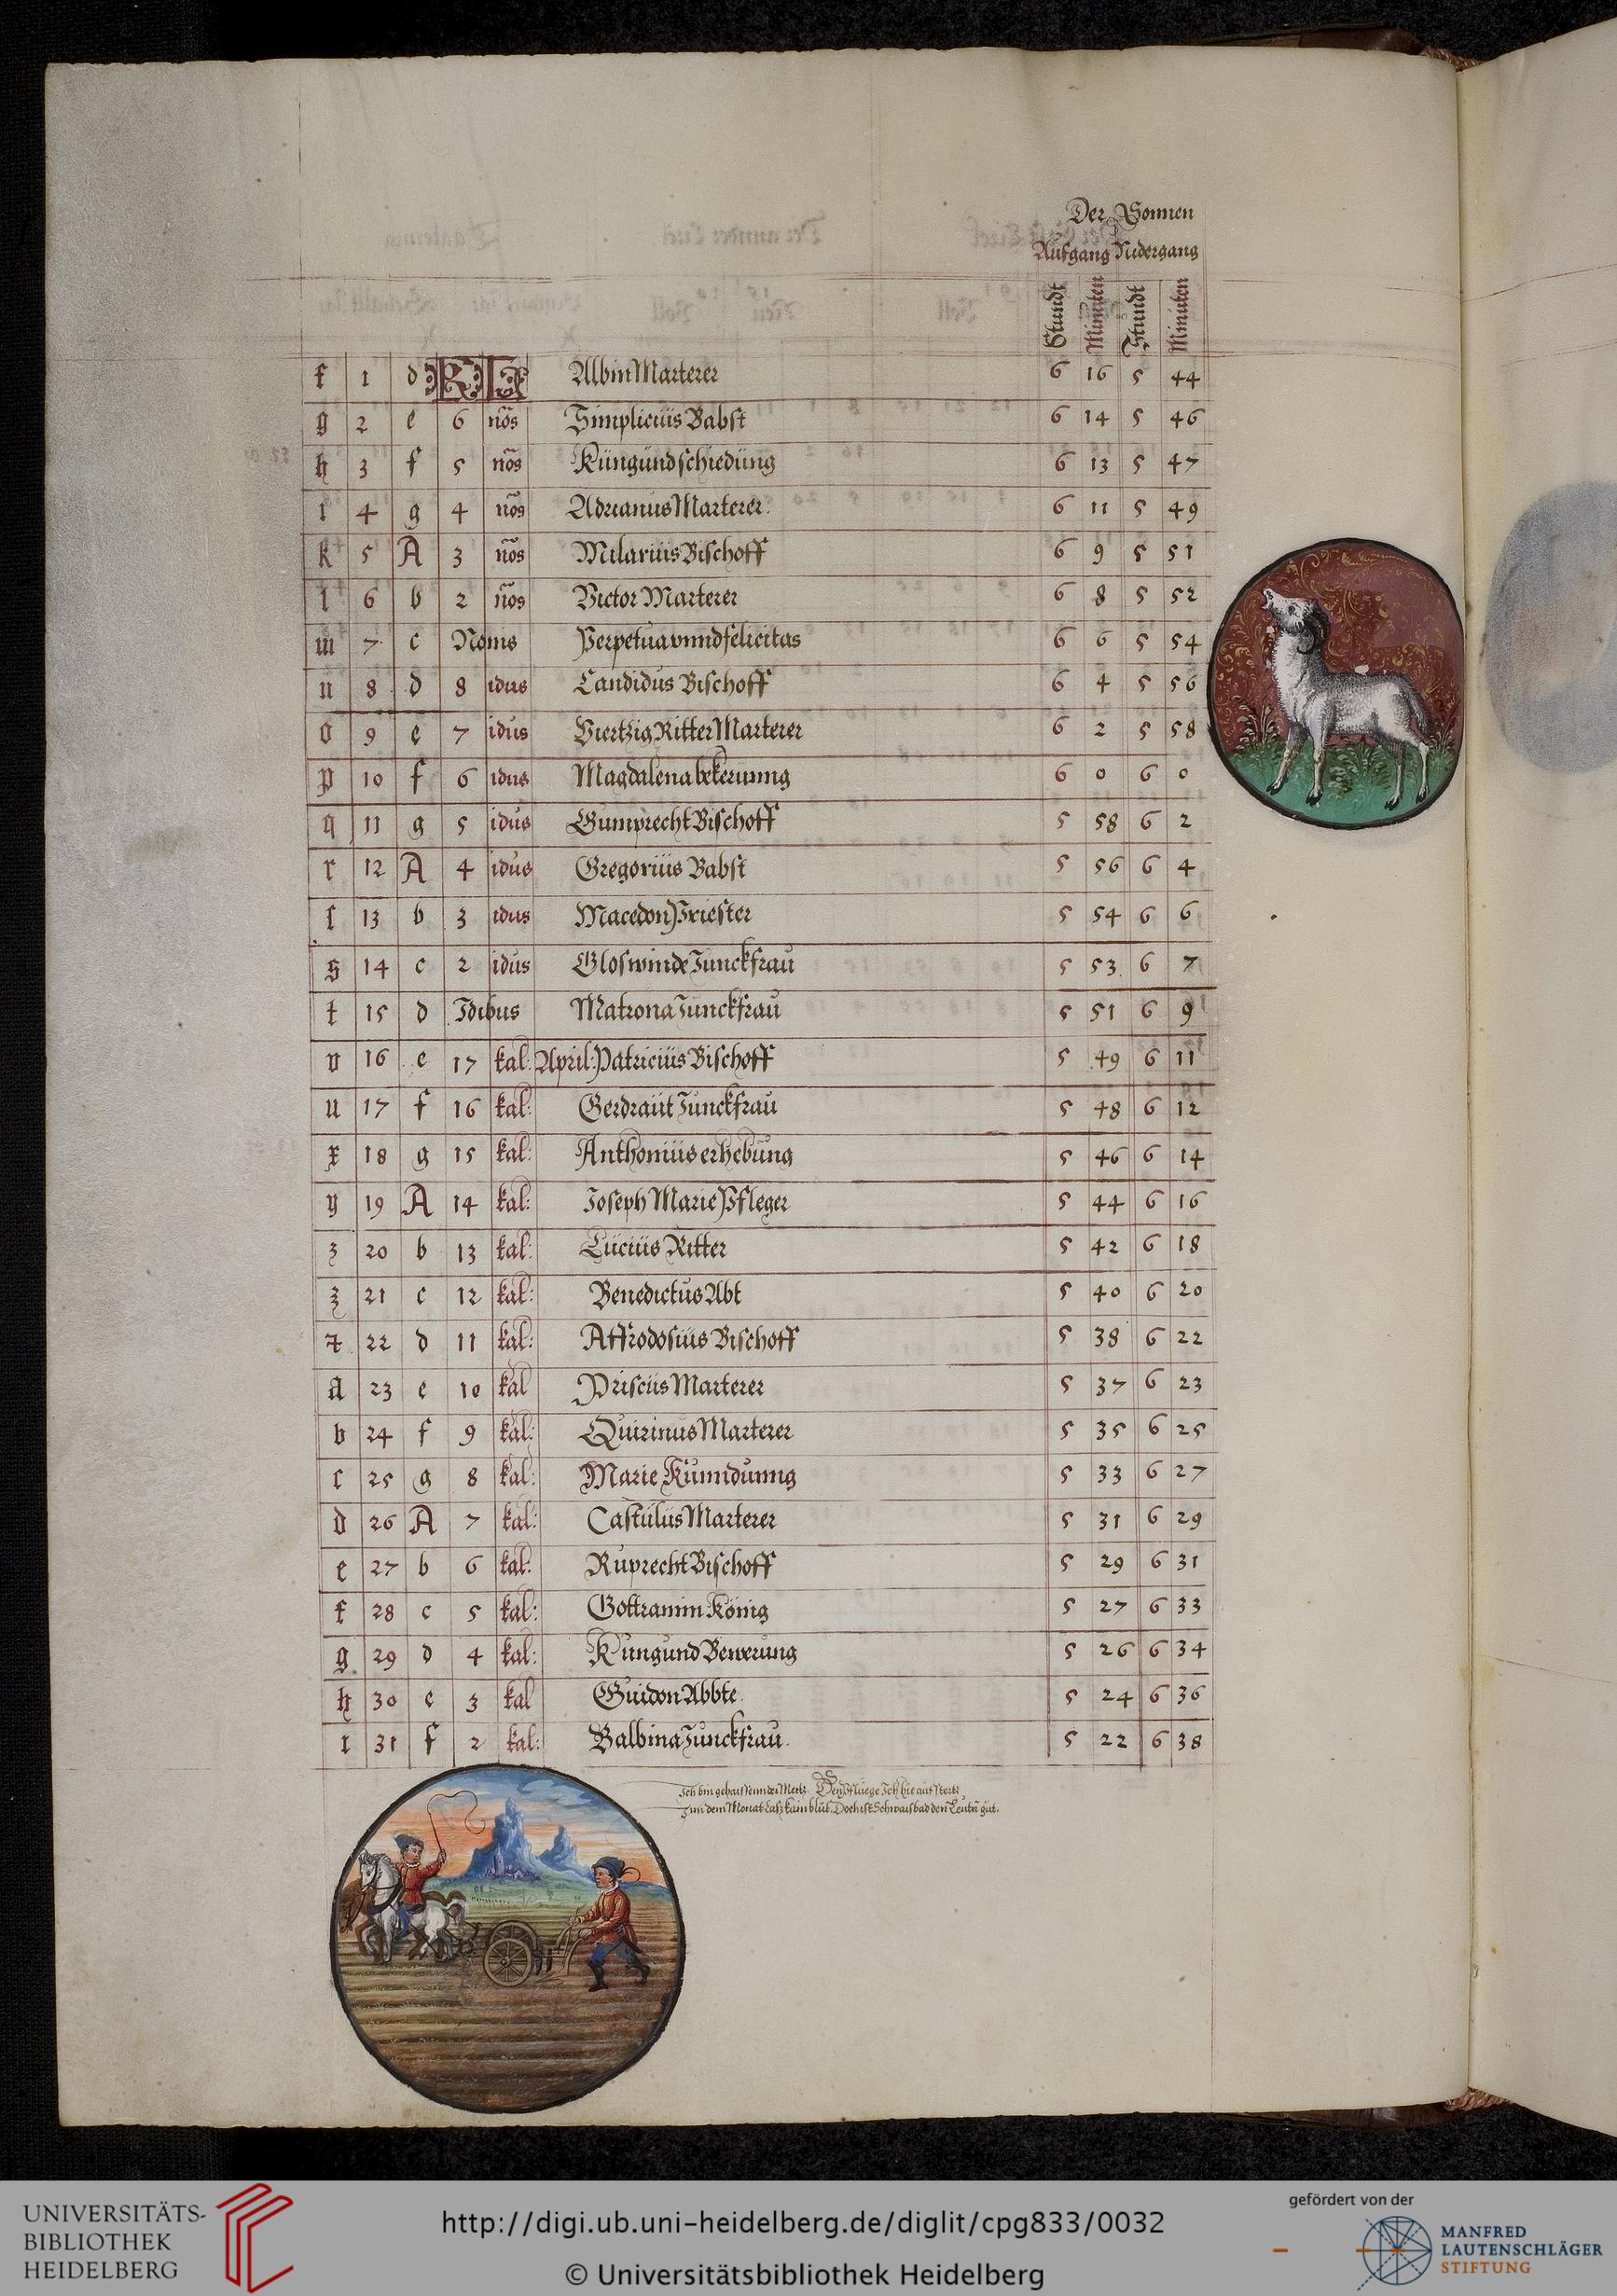 Der Sonnen
Aufgang Nidergang
Stundt Minuten Stundt Minuten
f 1 d KL Albin Marterer 6 16 5 44
g 2 e 6 nos Simplicius Babst 6 14 5 46
h 3 f 5 nos Küngund schiedung 6 13 5 47
i 4 g 4 nos Adrianus Marterer. 6 11 5 49
k 5 A 3 nos Milarius Bischoff 6 9 5 51
l 6 b 2 nos Victor Marterer 6 8 5 52
m 7 c Nonis Perpetua unnd felicitas 6 6 5 54
n 8 d 8 idus Candidus Bischoff 6 4 5 56
o 9 e 7 idus Viertzig Ritter Marterer 6 2 5 58
p 10 f 6 idus Magdalena bekerunng 6 0 6 0
q 11 g 5 idus Gumprecht Bischoff 5 58 6 2
r 12 A 4 idus Gregorius Babst 5 56 6 4
ſ 13 b 3 idus Macedon Priester 5 54 6 6
s 14 c 2 idus Gloswinde Junckfrau 5 53 6 7
t 15 d Idibus Matrona Junckfrau 5 51 6 9
v 16 e 17 kal: April: Patricius Bischoff 5 49 6 11
u 17 f 16 kal: Gerdraut Junckfrau 5 48 6 12
x 18 g 15 kal: Anthonius erhebung 5 46 6 14
y 19 A 14 kal: Joseph Marie Pfleger 5 44 6 16
z 20 b 13 kal: Lucius Ritter 5 42 6 18
ʒ 21 c 12 kal: Benedictus Abt 5 40 6 20
22 d 11 kal: Affrodosius Bischoff 5 38 6 22
a 23 e 10 kal Priscus Marterer 5 37 6 23
b 24 f 9 kal: Quirinus Marterer 5 35 6 25
c 25 g 8 kal: Marie Kunndunng 5 33 6 27
d 26 A 7 kal: Castulus Marterer 5 31 6 29
e 27 b 6 kal: Ruprecht Bischoff 5 29 6 31
f 28 c 5 kal: Gottramm König 5 27 6 33
g 29 d 4 kal: Kungund Bewerung 5 26 6 34
h 30 e 3 kal Guidon Abbte. 5 24 6 36
i 31 f 2 kal: Balbina Junckfrau. 5 22 6 38
Ich bin gehaissenn der Mertz. Den Pfluege Ich hie auf stertz
Inn dem Monat Lass kain blut. Doch ist Schwaisbad den Leutn gut.
UNIVERSITÄTS-
BIBLIOTHEK
HEIDELBERG
http://digi.ub.uni-heidelberg.de/diglit/cpg833/0032
© Universitätsbibliothek Heidelberg
gefördert von der
MANFRED
LAUTENSCHLÄGER
STIFTUNG